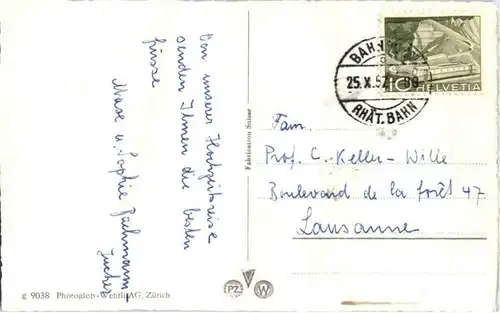 Von unserer Hochzeitsreise
senden Ihnen die besten
Grüsse
Max u. Sophie Bühlmann
Fabrication Suisse
BAHN
25.X.57
RHÄT. BAHN
10
HELVETIA
Fam.
Prof. C. Keller-Wille
Boulevard de la forêt 47
Lausanne
g 9038 Photoglob-Wehrli AG, Zürich
PZ W